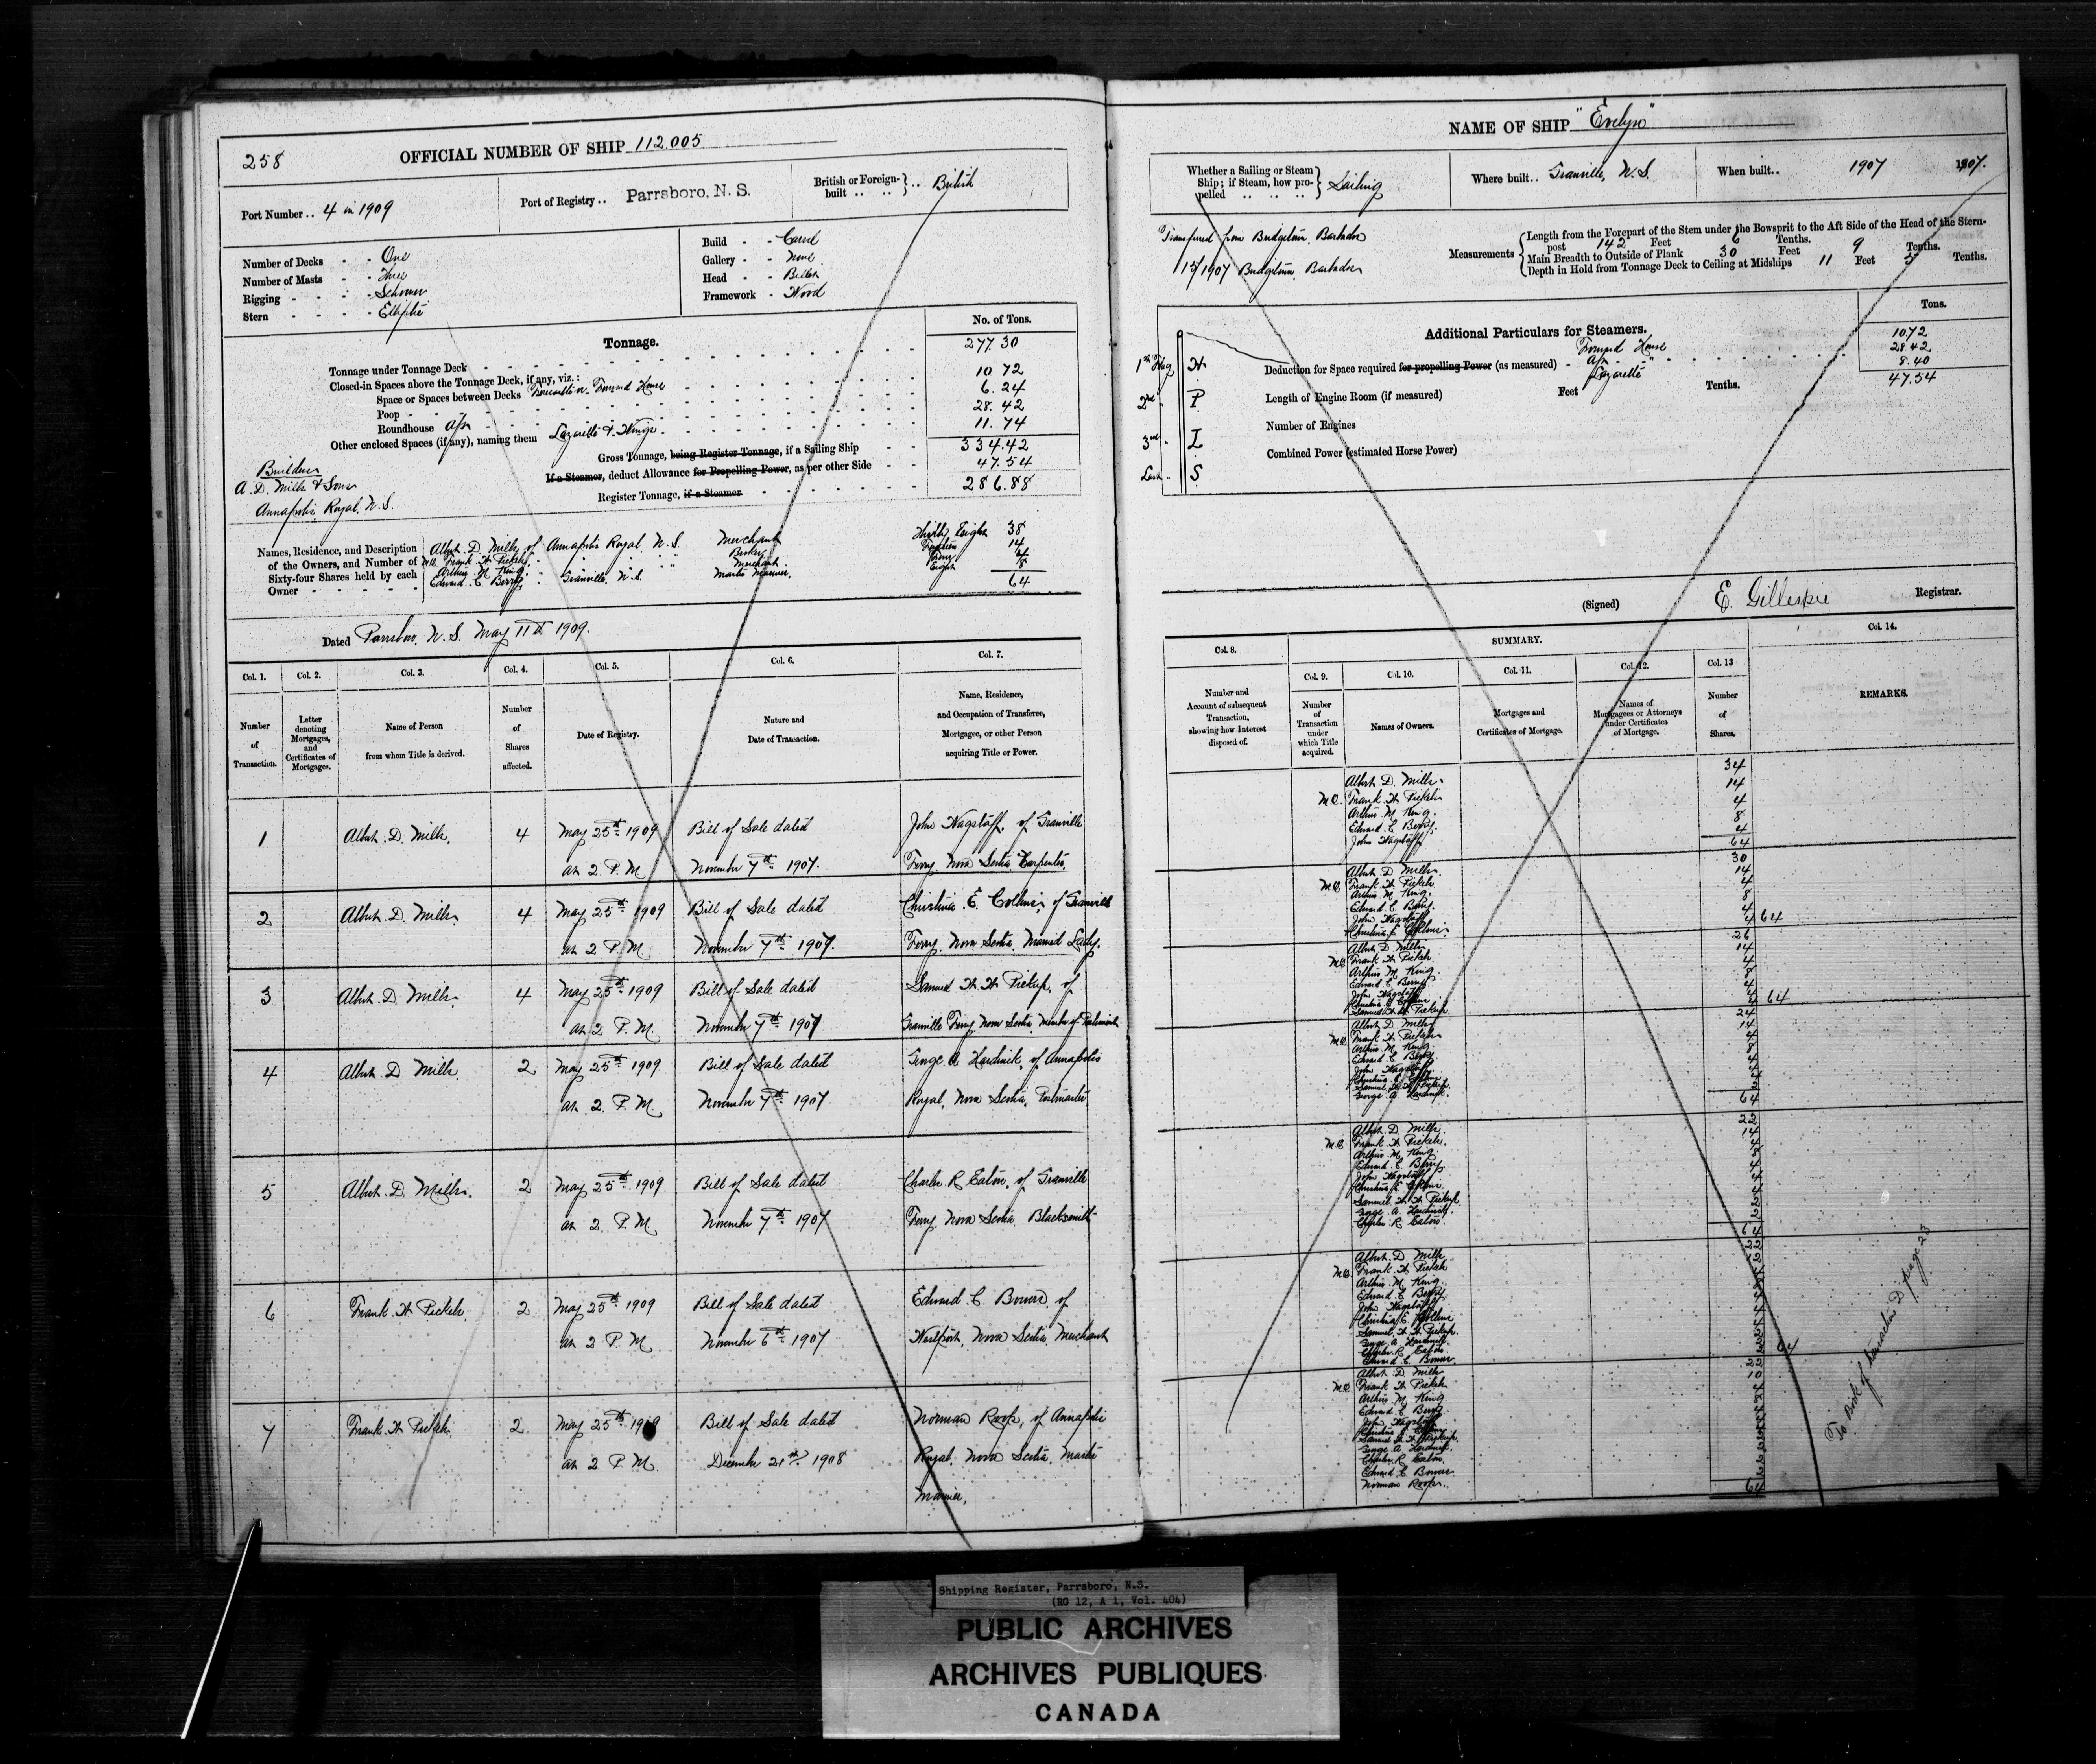 258
OFFICIAL NUMBER OF SHIP 112.005
Port Number .. 4 in 1909
Port of Registry .. Parrsboro, N. S.
British or Foreign-built .. .. British
Number of Decks - - One
Number of Masts - Three
Rigging - - - Schooner
Stern - - - - Elliptic
Build - - Carvel
Gallery - - None
Head - - Billet
Framework - Wood
Tonnage.
No. of Tons.
Tonnage under Tonnage Deck 277.30
Closed-in Spaces above the Tonnage Deck, if any, viz.:
Space or Spaces between Decks Forward House 10 72
Poop 6.24
Roundhouse Aft 28.42
Other enclosed Spaces (if any), naming them Lazarette & 11.74
Gross Tonnage, being Register Tonnage, if a Sailing Ship 334.42
If a Steamer, deduct Allowance for Propelling Power, as per other Side 47.54
Register Tonnage, if a Steamer 286.88
Builders
A. D. Mills & Sons
Annapolis Royal, N.S.
Names, Residence, and Description of the Owners, and Number of Sixty-four Shares held by each Owner
Albert D. Mills of Annapolis Royal N.S. Merchant Thirty Eight 38
M.O. Frank H Pickels Fourteen 14
Arthur M King Merchant Four 4
Edward C Berry Granville, N.S. Master Mariner, Eight 8
64
Dated Parrsboro, N.S. May 11th 1909.
Col. 1.
Number of Transaction.
Col. 2.
Letter denoting Mortgages, and Certificates of Mortgages.
Col. 3.
Name of Person from whom Title is derived.
Col. 4.
Number of Shares affected.
Col. 5.
Date of Registry.
Col. 6.
Nature and Date of Transaction.
Col. 7.
Name, Residence, and Occupation of Transferee, Mortgagee, or other Person acquiring Title or Power.
1 Albert D. Mills. 4 May 25th 1909 Bill of Sale dated John Wagstaff, of Granville
at 2 P.M November 7th 1907. Ferry Nova Scotia Carpenter.
2 Albert D. Mills 4 May 25th 1909 Bill of Sale dated Christina E. Collins, of Granville
at 2 P.M November 7th 1907. Ferry Nova Scotia, Married Lady.
3 Albert D Mills. 4 May 25th 1909 Bill of Sale dated Samuel W. W. Pickup, of
at 2 P.M. November 7th 1907 Granville Ferry Nova Scotia, Member of Parliament
4 Albert D. Mills. 2 May 25th 1909 Bill of Sale dated George A Hardwick, of Annapolis
at 2. P.M November 7th 1907 Royal, Nova Scotia, Postmaster.
5 Albert D. Mills. 2 May 25th 1909 Bill of Sale dated Charles R Eaton, of Granville
at 2. P.M. November 7th 1907 Ferry Nova Scotia. Blacksmith
6 Frank H Pickels. 2 May 25th 1909 Bill of Sale dated Edward C. Bowers of
at 2 P.M November 6th 1907 Westport, Nova Scotia Merchant
7 Frank H Pickels. 2 May 25th 1909 Bill of Sale dated Norman Roop, of Annapolis
at 2 P.M December 21st 1908 Royal, Nova Scotia, Master
Mariner,
NAME OF SHIP "Evelyn"
Whether a Sailing or Steam Ship; if Steam, how propelled .. .. .. Sailing
Where built.. Granville, N.S.
When built.. 1907 1907.
Transferred from Bridgetown, Barbados
15/1907 Bridgetown, Barbados
Measurements
Length from the Forepart of the Stem under the Bowsprit to the Aft Side of the Head of the Stern-
post 142 Feet 6 Tenths.
Main Breadth to Outside of Plank 30 Feet 9 Tenths.
Depth in Hold from Tonnage Deck to Ceiling at Midships 11 Feet 5 Tenths.
Additional Particulars for Steamers.
Tons.
1st Flag H
2nd " P
3rd " L
Last " S
Deduction for Space required for propelling Power (as measured) - Forward House 10.72
Aft " 28.42
Lazarette 8.40
47.54
Length of Engine Room (if measured) Feet Tenths.
Number of Engines
Combined Power (estimated Horse Power)
(Signed) E. Gillespie Registrar.
Col. 8.
Number and Account of subsequent Transaction, showing how Interest disposed of.
SUMMARY.
Col. 9.
Number of Transaction under which Title acquired.
Col. 10.
Names of Owners.
Col. 11.
Mortgages and Certificates of Mortgage.
Col. 12.
Names of Mortgagees or Attorneys under Certificates of Mortgage.
Col. 13
Number of Shares.
Col. 14.
REMARKS.
Albert D Mills 34
M.O. Frank H Pickels 14
Arthur M King. 4
Edward C Berry. 8
John Wagstaff 4
64
Albert D Mills. 30
M.O. Frank H Pickels 14
Arthur M King. 4
Edward C Berry. 8
John Wagstaff 4
Christina E Collins. 4 64
Albert D Mills 26
M.O. Frank H Pickels 14
Arthur M King. 4
Edward C Berry 8
John Wagstaff 4
Christina E Collins 4
Samuel W W Pickup 4 64
Albert D Mills 24
M.O. Frank H Pickels 14
Arthur M King. 4
Edward C Berry 8
John Wagstaff 4
Christina E Collins 4
Samuel W W Pickup 4
George A Hardwick. 2
64
Albert D Mills 22
M.O. Frank H Pickels. 14
Arthur M King 4
Edward C Berry 8
John Wagstaff 4
Christina E Collins 4
Samuel W W Pickup 4
George A Hardwick. 2
Charles R Eaton. 2
64
Albert D Mills 22
M.O. Frank H Pickels 12
Arthur M King. 4
Edward C Berry 8
John Wagstaff 4
Christina E Collins 4
Samuel W W Pickup. 4
George A Hardwick. 2
Charles R Eaton. 2
Edward C Bowers. 2 64
Albert D Mills 22
M.O. Frank H Pickels 10
Arthur M King 4
Edward C Berry 8
John Wagstaff 4
Christina E Collins 4
Samuel W W Pickup. 4
George A Hardwick. 2
Charles R Eaton. 2
Edward C Bowers. 2
Norman Roop. 2
64
To Book of Transaction D page 23
Shipping Register, Parrsboro, N.S.
(RG 12, A 1, Vol. 404)
PUBLIC ARCHIVES
ARCHIVES PUBLIQUES
CANADA